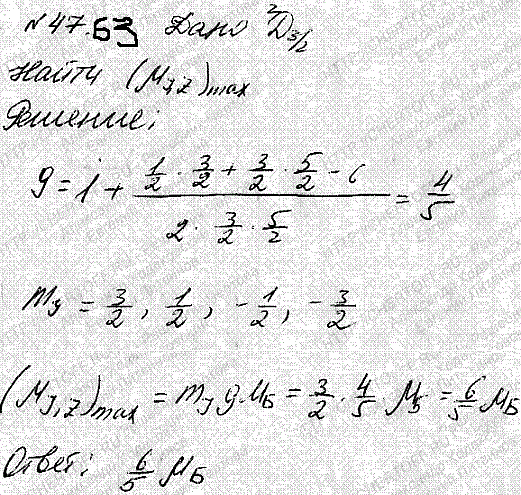 № 47.63 Дано ²D₃/₂
Найти (M_J,z)max
Решение:
g = 1 + (1/2 · 3/2 + 3/2 · 5/2 - 6) / (2 · 3/2 · 5/2) = 4/5
m_J = 3/2, 1/2, -1/2, -3/2
(M_J,z)max = m_J g M_Б = 3/2 · 4/5 · M_Б = 6/5 M_Б
Ответ: 6/5 M_Б